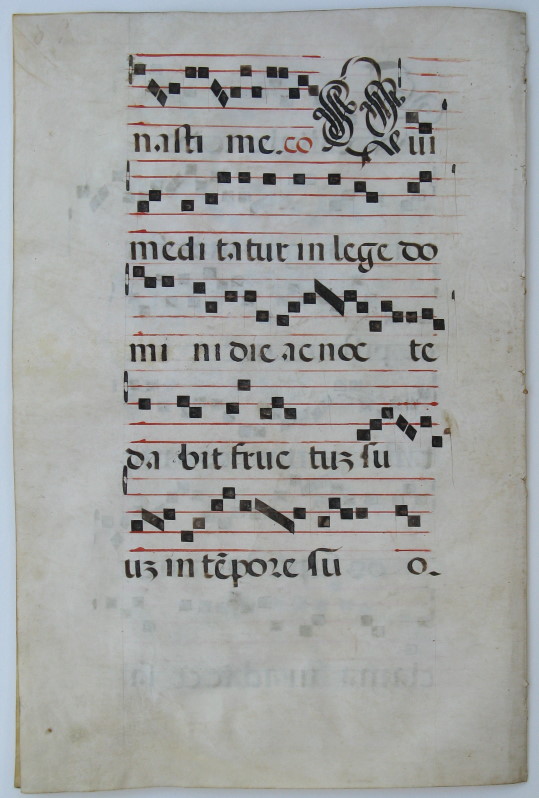 nasti me. co Qui
meditatur in lege do
mini die ac nocte
dabit fructuʒ su
uʒ in tēpore suo.